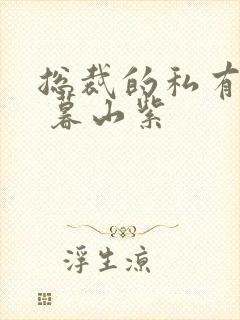 总裁的私有
暮山紫
浮生凉